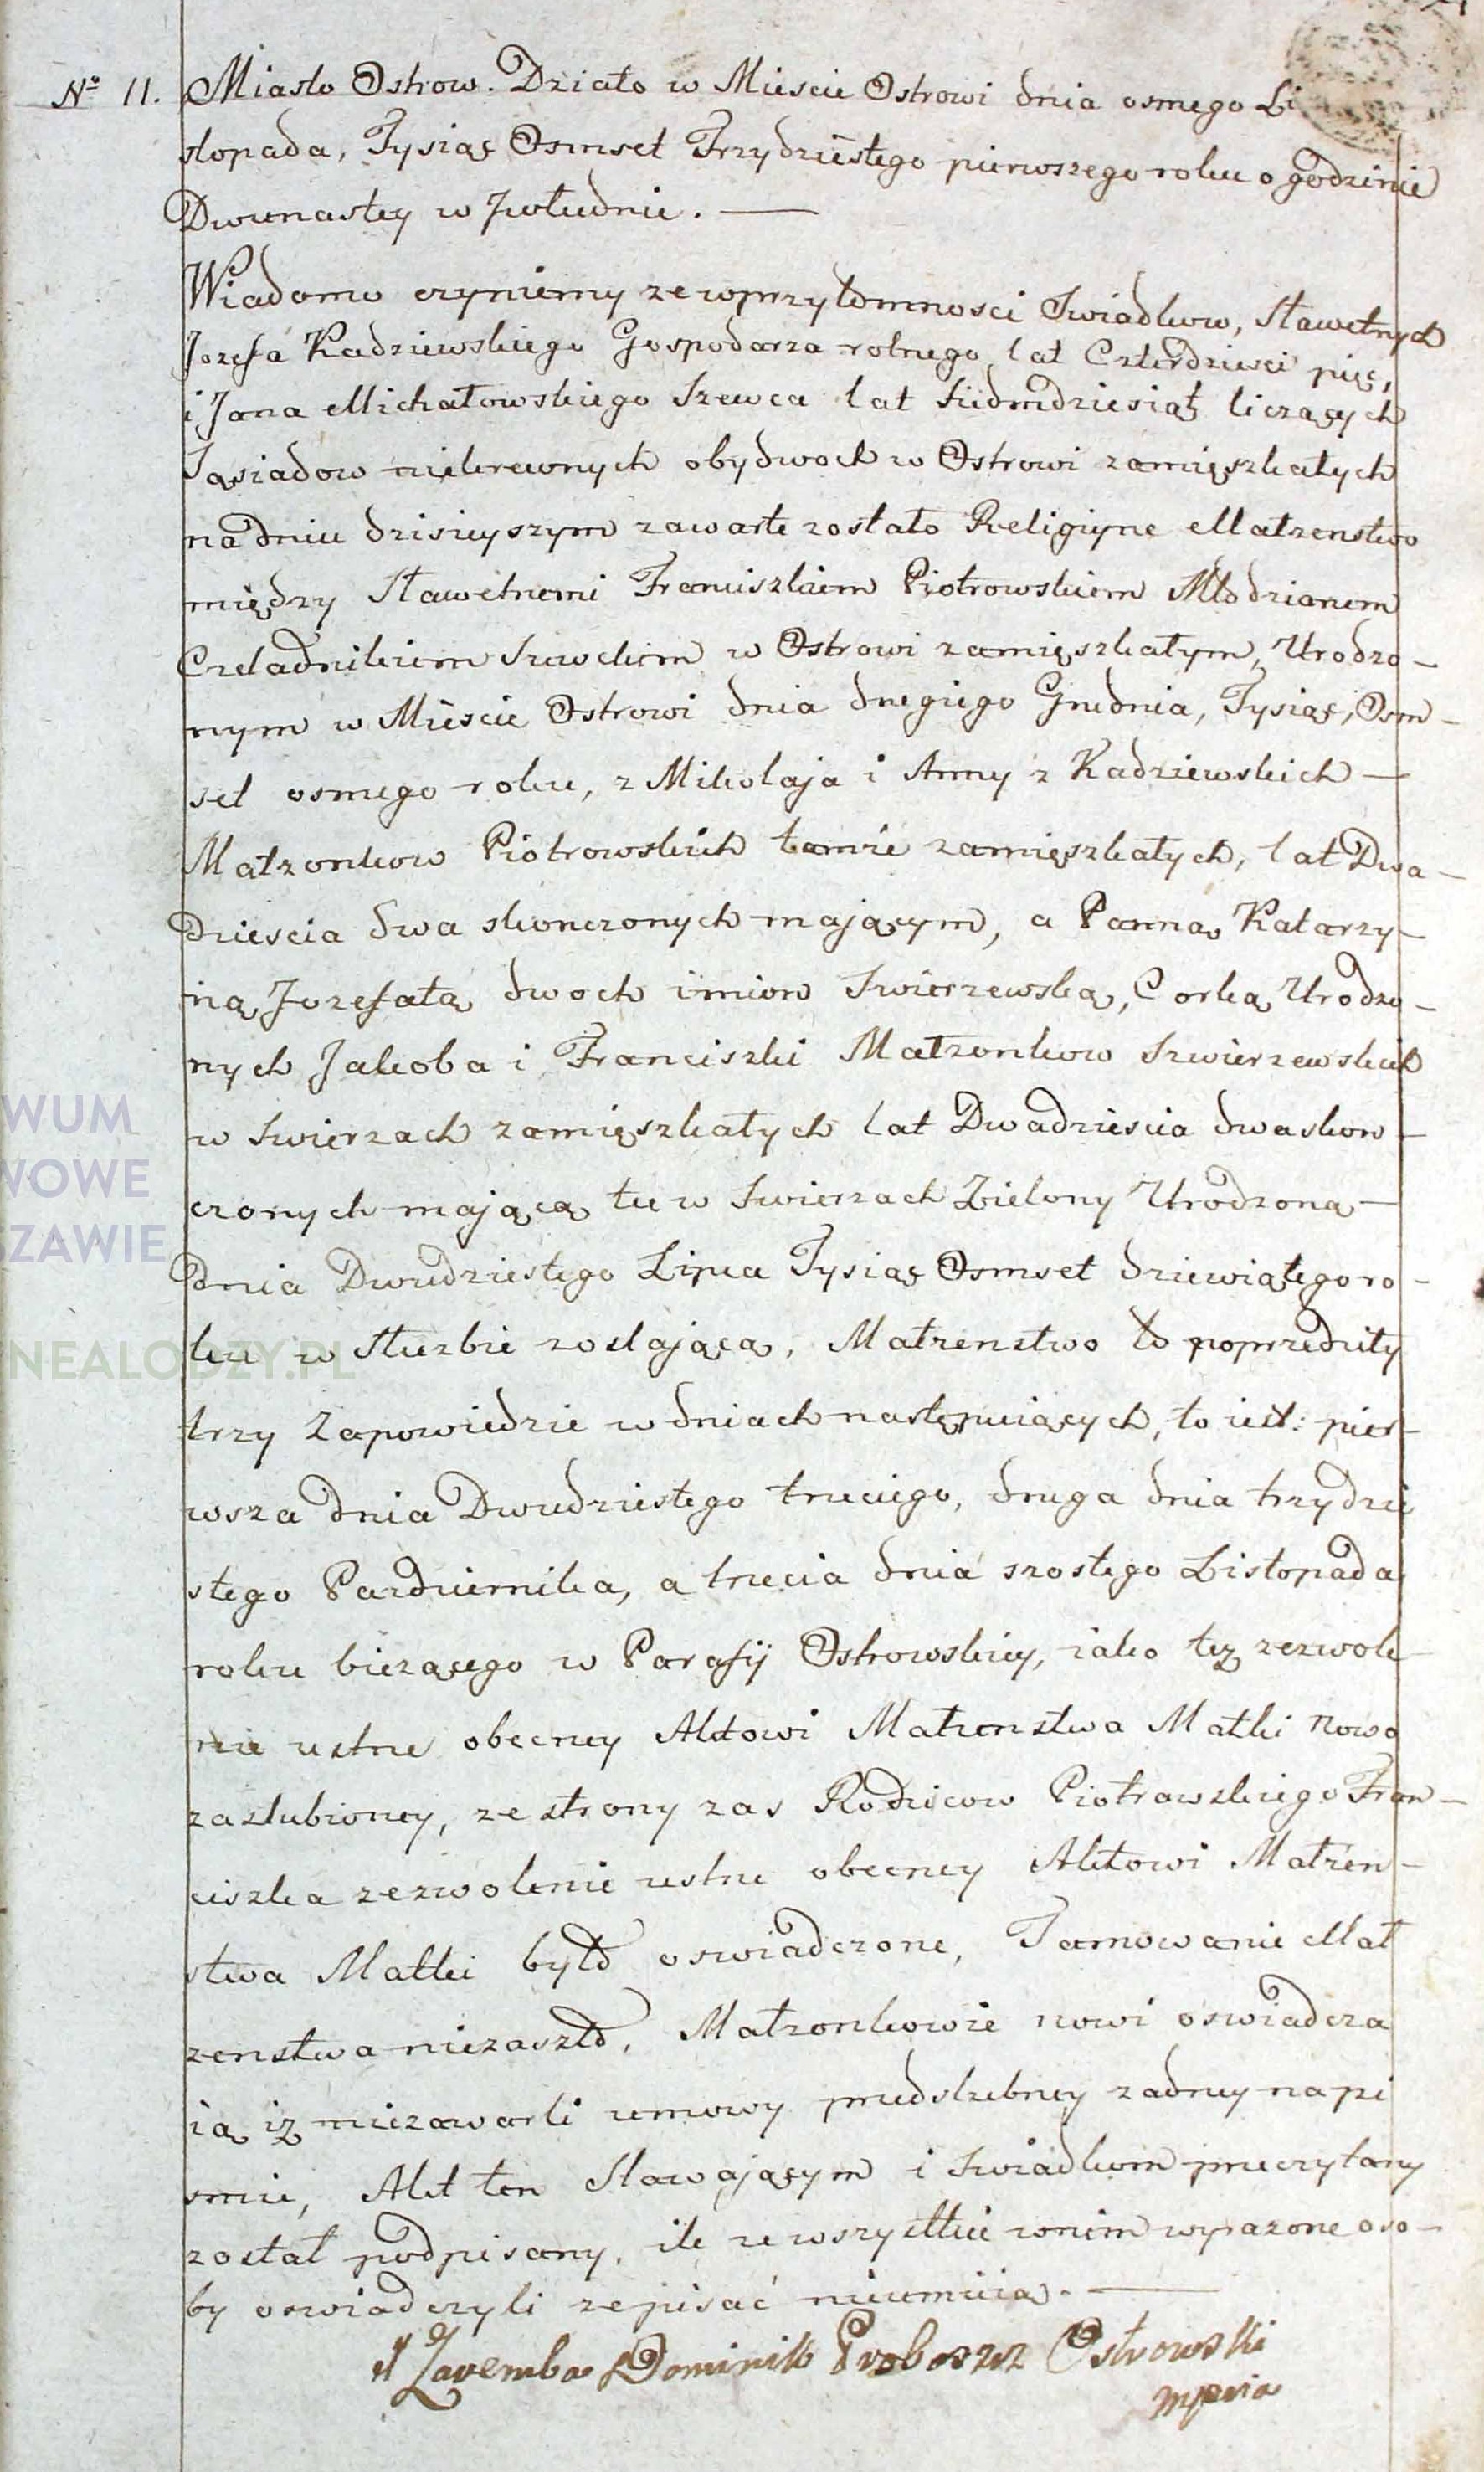 No 11. Miasto Ostrow. Działo w Mieście Ostrowi dnia osmego Li
stopada, Tysiąc Osmset Trzydziestego pierwszego roku o godzinie
Dwunastey w południe. —
Wiadomo czyniemy ze wprzytomnosci Swiadkow, Sławetnych
Jozefa Kadziewskiego Gospodarza rolnego lat Czterdziesci pięć,
i Jana Michałowskiego Szewca lat Siedmdziesiąt liczących
Sąsiadow niekrewnych obydwoch w Ostrowi zamięszkałych
na dniu dzisieyszym zawarte zostało Religiyne Małzenstwo
między Sławetnemi Franciszkiem Piotrowskiem Młodzianem
Czeladnikiem Szewckiem w Ostrowi zamięszkałym, Urodzo-
nym w Mieście Ostrowi dnia drugiego Grudnia, Tysiąc, Osm-
set osmego roku, z Mikołaja i Anny z Kadziewskich —
Małzonkow Piotrowskich tamże zamięszkałych, lat Dwa-
dziescia dwa skonczonych mającym, a Panną Katarzy-
ną Jozefatą dwoch imion Swierzewską, Corką Urodzo-
nych Jakoba i Franciszki Małzonkow Swierzewskich
w Swierzach zamięszkałych lat Dwadziescia dwa skon-
czonych mającą tu w Swierzach Zielony Urodzoną —
dnia Dwudziestego Lipca Tysiąc Osmset dziewiątego ro-
ku w służbie zostającą, Małzenstwo to poprzedziły
trzy Zapowiedzie w dniach następuiących, to iest: pier-
wsza dnia Dwudziestego trzeciego, druga dnia trzydzie
stego Pazdziernika, a trzecia dnia szostego Listopada
roku bieżącego w Parafij Ostrowskiey, iako też zezwole-
nie ustne obecney Aktowi Małzenstwa Matki nowo
zaslubioney, ze strony zas Rodzicow Piotrowskiego Fran-
ciszka zezwolenie ustne obecney Aktowi Małżen-
stwa Matki było oswiadczone, Tamowanie Mał
zenstwa niezaszło, Małzonkowie nowi oswiadcza
ią iż niezawarli umowy przedslubney zadney na pi
smie, Akt ten Stawającym i Swiadkom przeczytany
został podpisany, ile ze wszystkie wnim wyrazone oso-
by oswiadczyli ze pisać nieumieią. —
X Zaremba Dominik Proboszcz Ostrowski
mpria
WUM
WOWE
SZAWIE
NEALODZY.PL